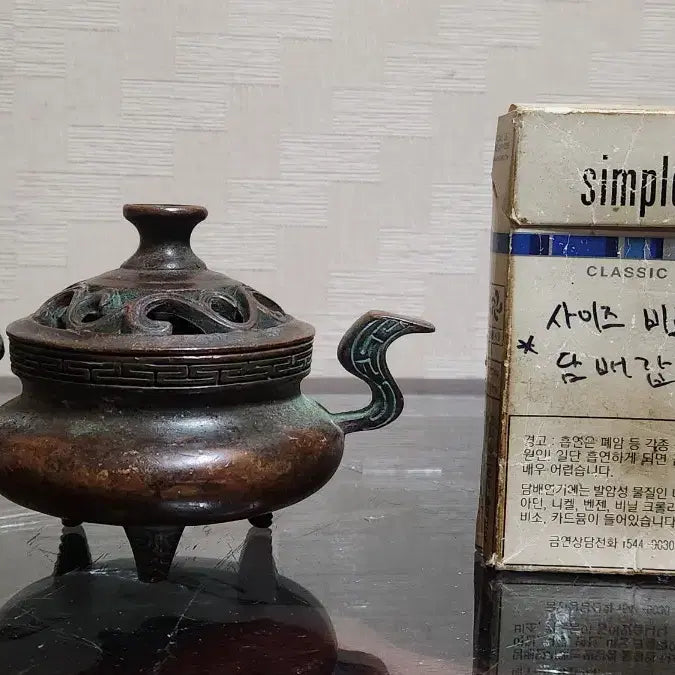 simple
CLASSIC
사이즈 비
* 담배갑
경고 : 흡연은 폐암 등 각종
원인! 일단 흡연하게 되면
매우 어렵습니다.
담배연기에는 발암성 물질인
아민, 니켈, 벤젠, 비닐 크롤
비소, 카드뮴이 들어있습니다
금연상담전화 1544-9030